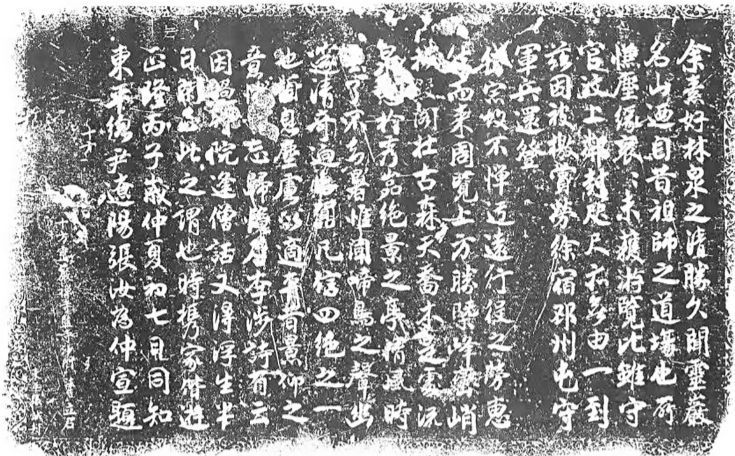 余素好林泉之清勝久聞靈巖
名山迺自昔祖師之道場也所
恨塵緣袞〻未獲游覽比雖守
官汶上鄰封咫尺亦無由一到
茲因被檄賞勞徐宿邳州屯守
軍兵還登
岱宗故不憚迂遠行役之勞惠
然而來周覽上方勝槩峰巒峭
拔殿閣壯古森天喬木 雲流
泉 於秀岩絕景之亭清風時
了不知暑惟聞啼鳥之聲幽
邃清奇迥隔 凡信四絕之一
也暫息塵慮以適 昔景仰之
意 忘歸 唐李涉詩有云
因過竹院逢僧話又得浮生半
日閒正此之謂也時攜家偕遊
正隆丙子歲仲夏初七日同知
東平總尹遼陽張汝為仲宣題